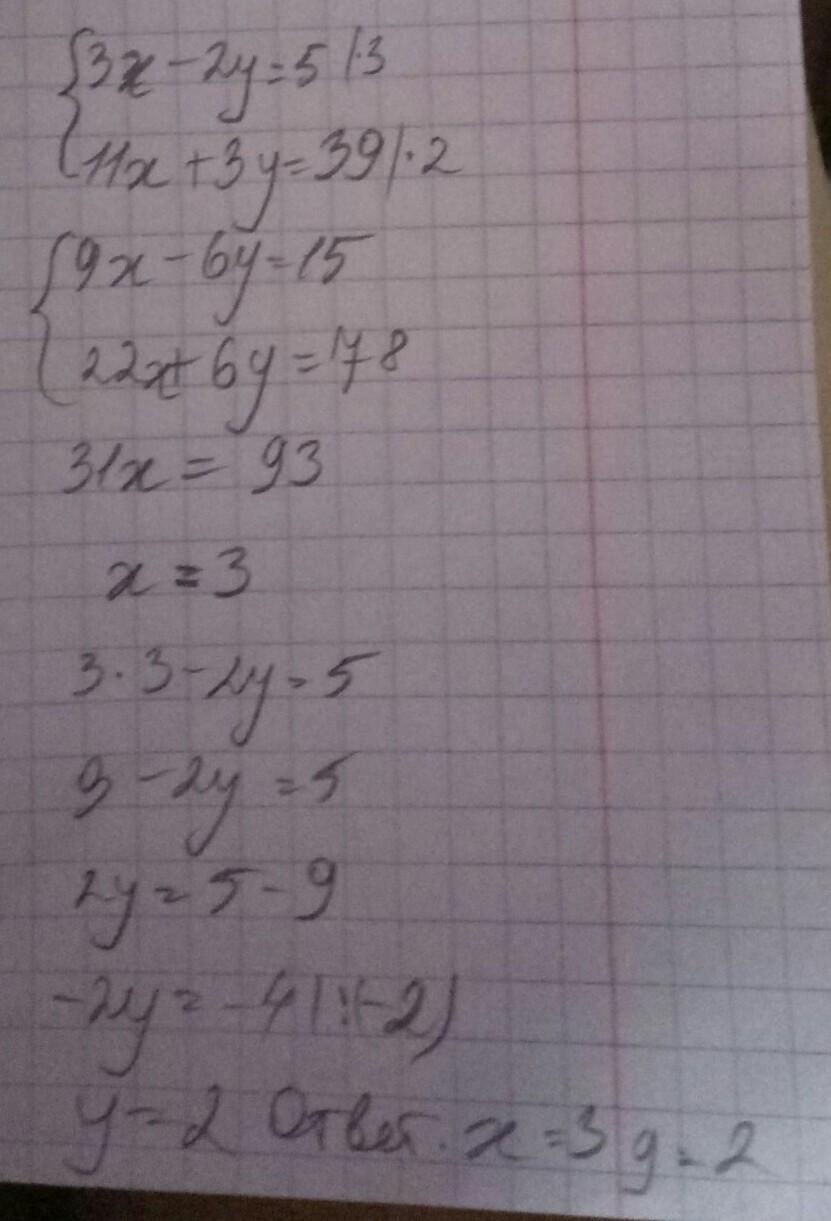 {3x-2y=5|·3
11x+3y=39|·2
{9x-6y=15
22x+6y=78
31x=93
x=3
3·3-2y=5
9-2y=5
2y=5-9
-2y=-4|:(-2)
y=2 Ответ. x=3 y=2